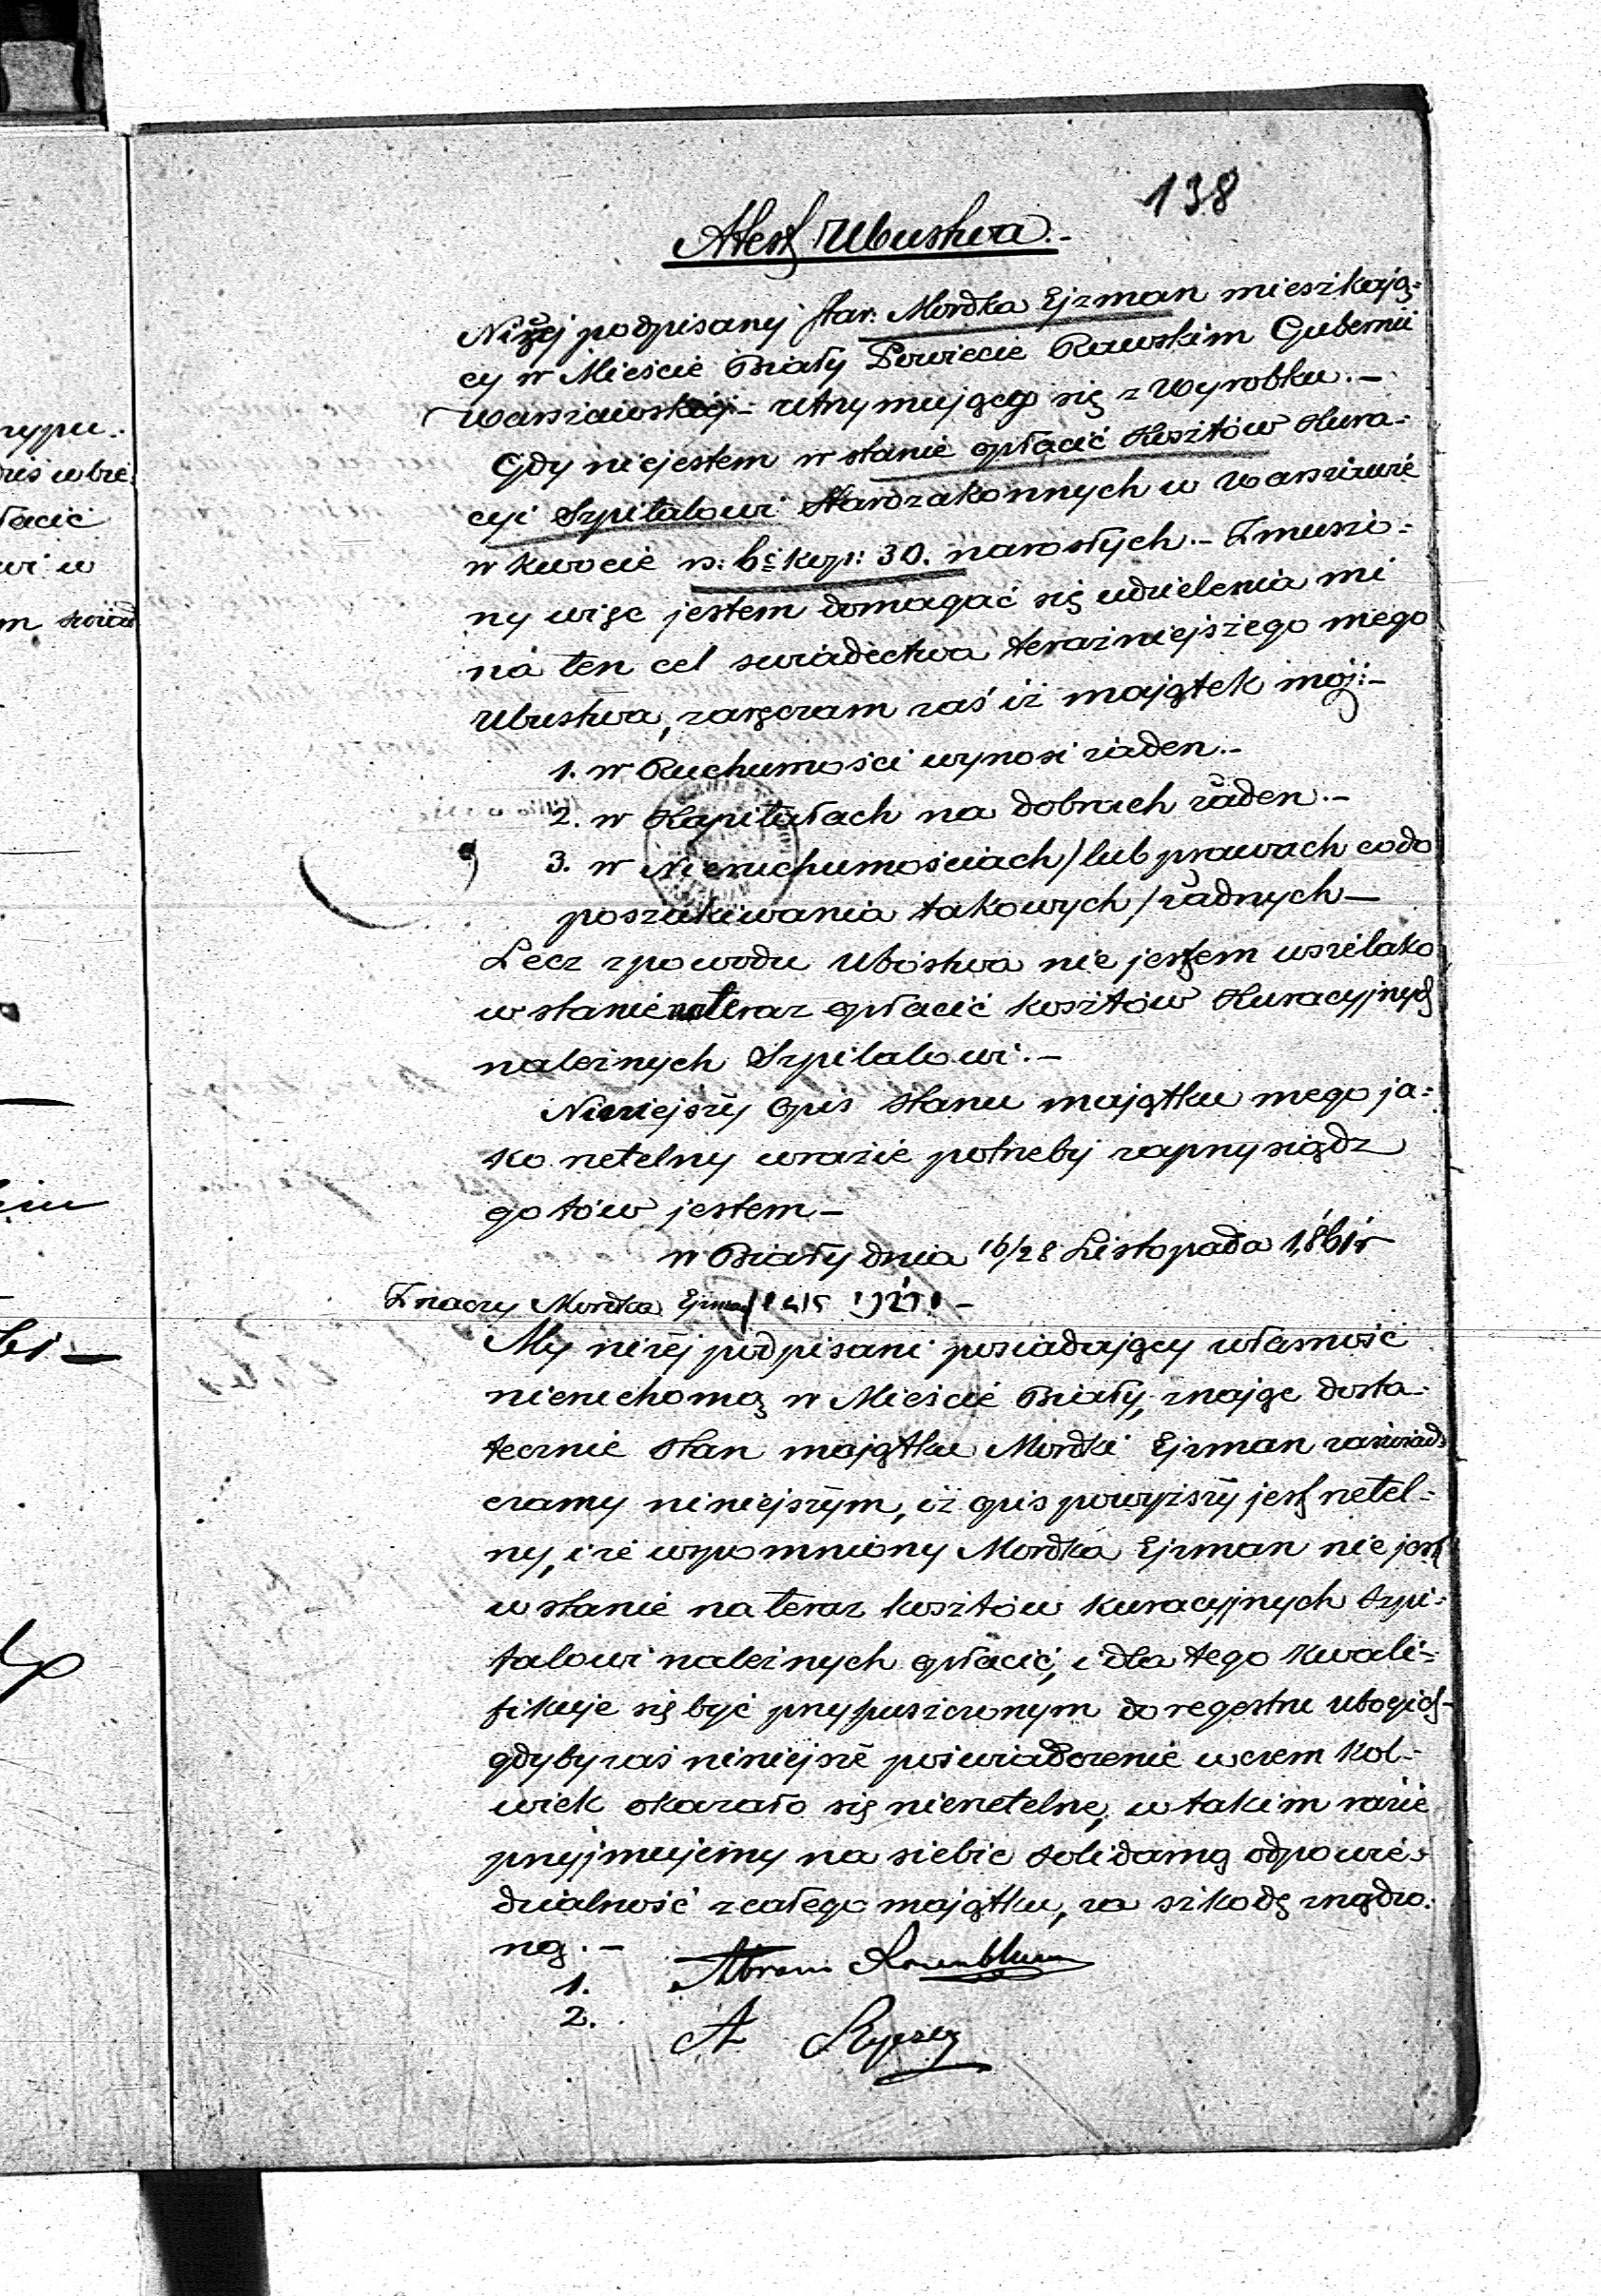 138
Atest Ubustwa.-
Niżej podpisany Star. Mordka Ejzman mieszkają-
cy w Mieście Biały Powiecie Rawskim Gubernii
Warszawskiej - utrzymującego się z Wyrobku.-
Gdy niejestem w stanie opłacić Kosztów Kura-
cyi Szpitalowi Starozakonnych w Warszawie
w kwocie rs: 6 kop: 30. narosłych.- Zmuszo-
ny więc jestem domagać się udzielenia mi
na ten cel swiadectwa teraźniejszego mego
Ubustwa, zaręczam zaś iż majątek mój:-
1. w Ruchumości wynosi żaden.-
2. w Kapitałach na dobrach żaden.-
3. w Nieruchumościach / lub prawach codo
poszukiwania takowych / żadnych-
Lecz zpowodu Ubóstwa nie jestem wszelako
w stanie nateraz opłacić kosztów Kuracyjnych
należnych Szpitalowi.-
Niniejszy Opis stanu majątku mego ja-
ko rzetelny wrazie potrzeby zaprzysiądz
gotów jestem-
w Biały dnia 16/28 Listopada 1861r
Znaczy Mordka Ejzman
My niżej podpisani posiadający własność
nieruchomą w Mieście Biały, znając dosta-
tecznie stan majątku Mordki Ejzman zaświad-
czamy niniejszym, iż opis powyższy jest rzetel-
ny, i że wspomniony Mordka Ejzman nie jest
w stanie na teraz kosztów kuracyjnych Szpi-
talowi należnych opłacić, i dla tego kwali-
fikuje się być przypuszczonym do regestru ubogich-
gdyby zaś niniejsze poświadczenie w czem kol-
wiek okazało się nierzetelne, w takim razie
przyjmujemy na siebie solidarną odpowie-
dzialność z całego majątku, za szkodę zrządzo-
ną.-
1. Abram Rozenblum
2. A